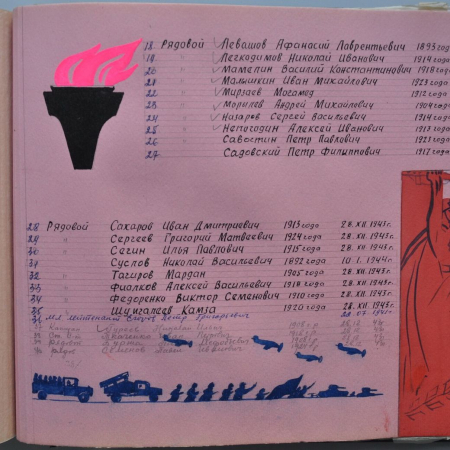 18 Рядовой Левашов Афанасий Лаврентьевич 1895 года
19 Легкодимов Николай Иванович 1914 года
20 " Мамелин Василий Константинович 1918 года
21 " Мальишкин Иван Михайлович 1923 года
22 " Мирзаев Могамед 1912 года
23 " Морилев Андрей Михайлович 1904 года
24 " Назаров Сергей Васильевич 1914 года
25 " Непогодин Алексей Иванович 1913 года
26 " Савостин Петр Павлович 1921 года
27 Садовский Петр Филиппович 1917 года
28 Рядовой Сахаров Иван Дмитриевич 1913 года 28. XII 1943 г.
29 " Сергеев Григорий Матвеевич 1924 года 28. XII. 1943 г.
30 " Сегин Илья Павлович 1915 года 28. XII. 1943 г.
31 " Суслов Николай Васильевич 1892 года 10. I. 1944 г.
32 " Тагиров Мардан 1905 года 28. XII. 1943 г.
33 " Фиалков Алексей Васильевич 1918 года 28. XII. 1943 г.
34 " Федоренко Виктор Семенович 1910 года 28. XII. 1943 г.
35 Шунгалеев Камза 1920 года 28. XII. 1943 г.
36 Мл. лейтенант Петр Григорьевич